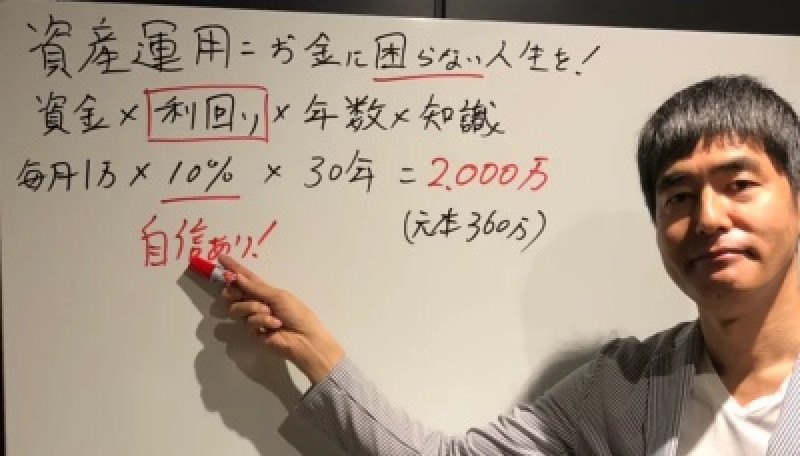 資産運用=お金に困らない人生を!
資金×利回り×年数×知識
毎月1万×10%×30年=2.000万
(元本360万)
自信あり!